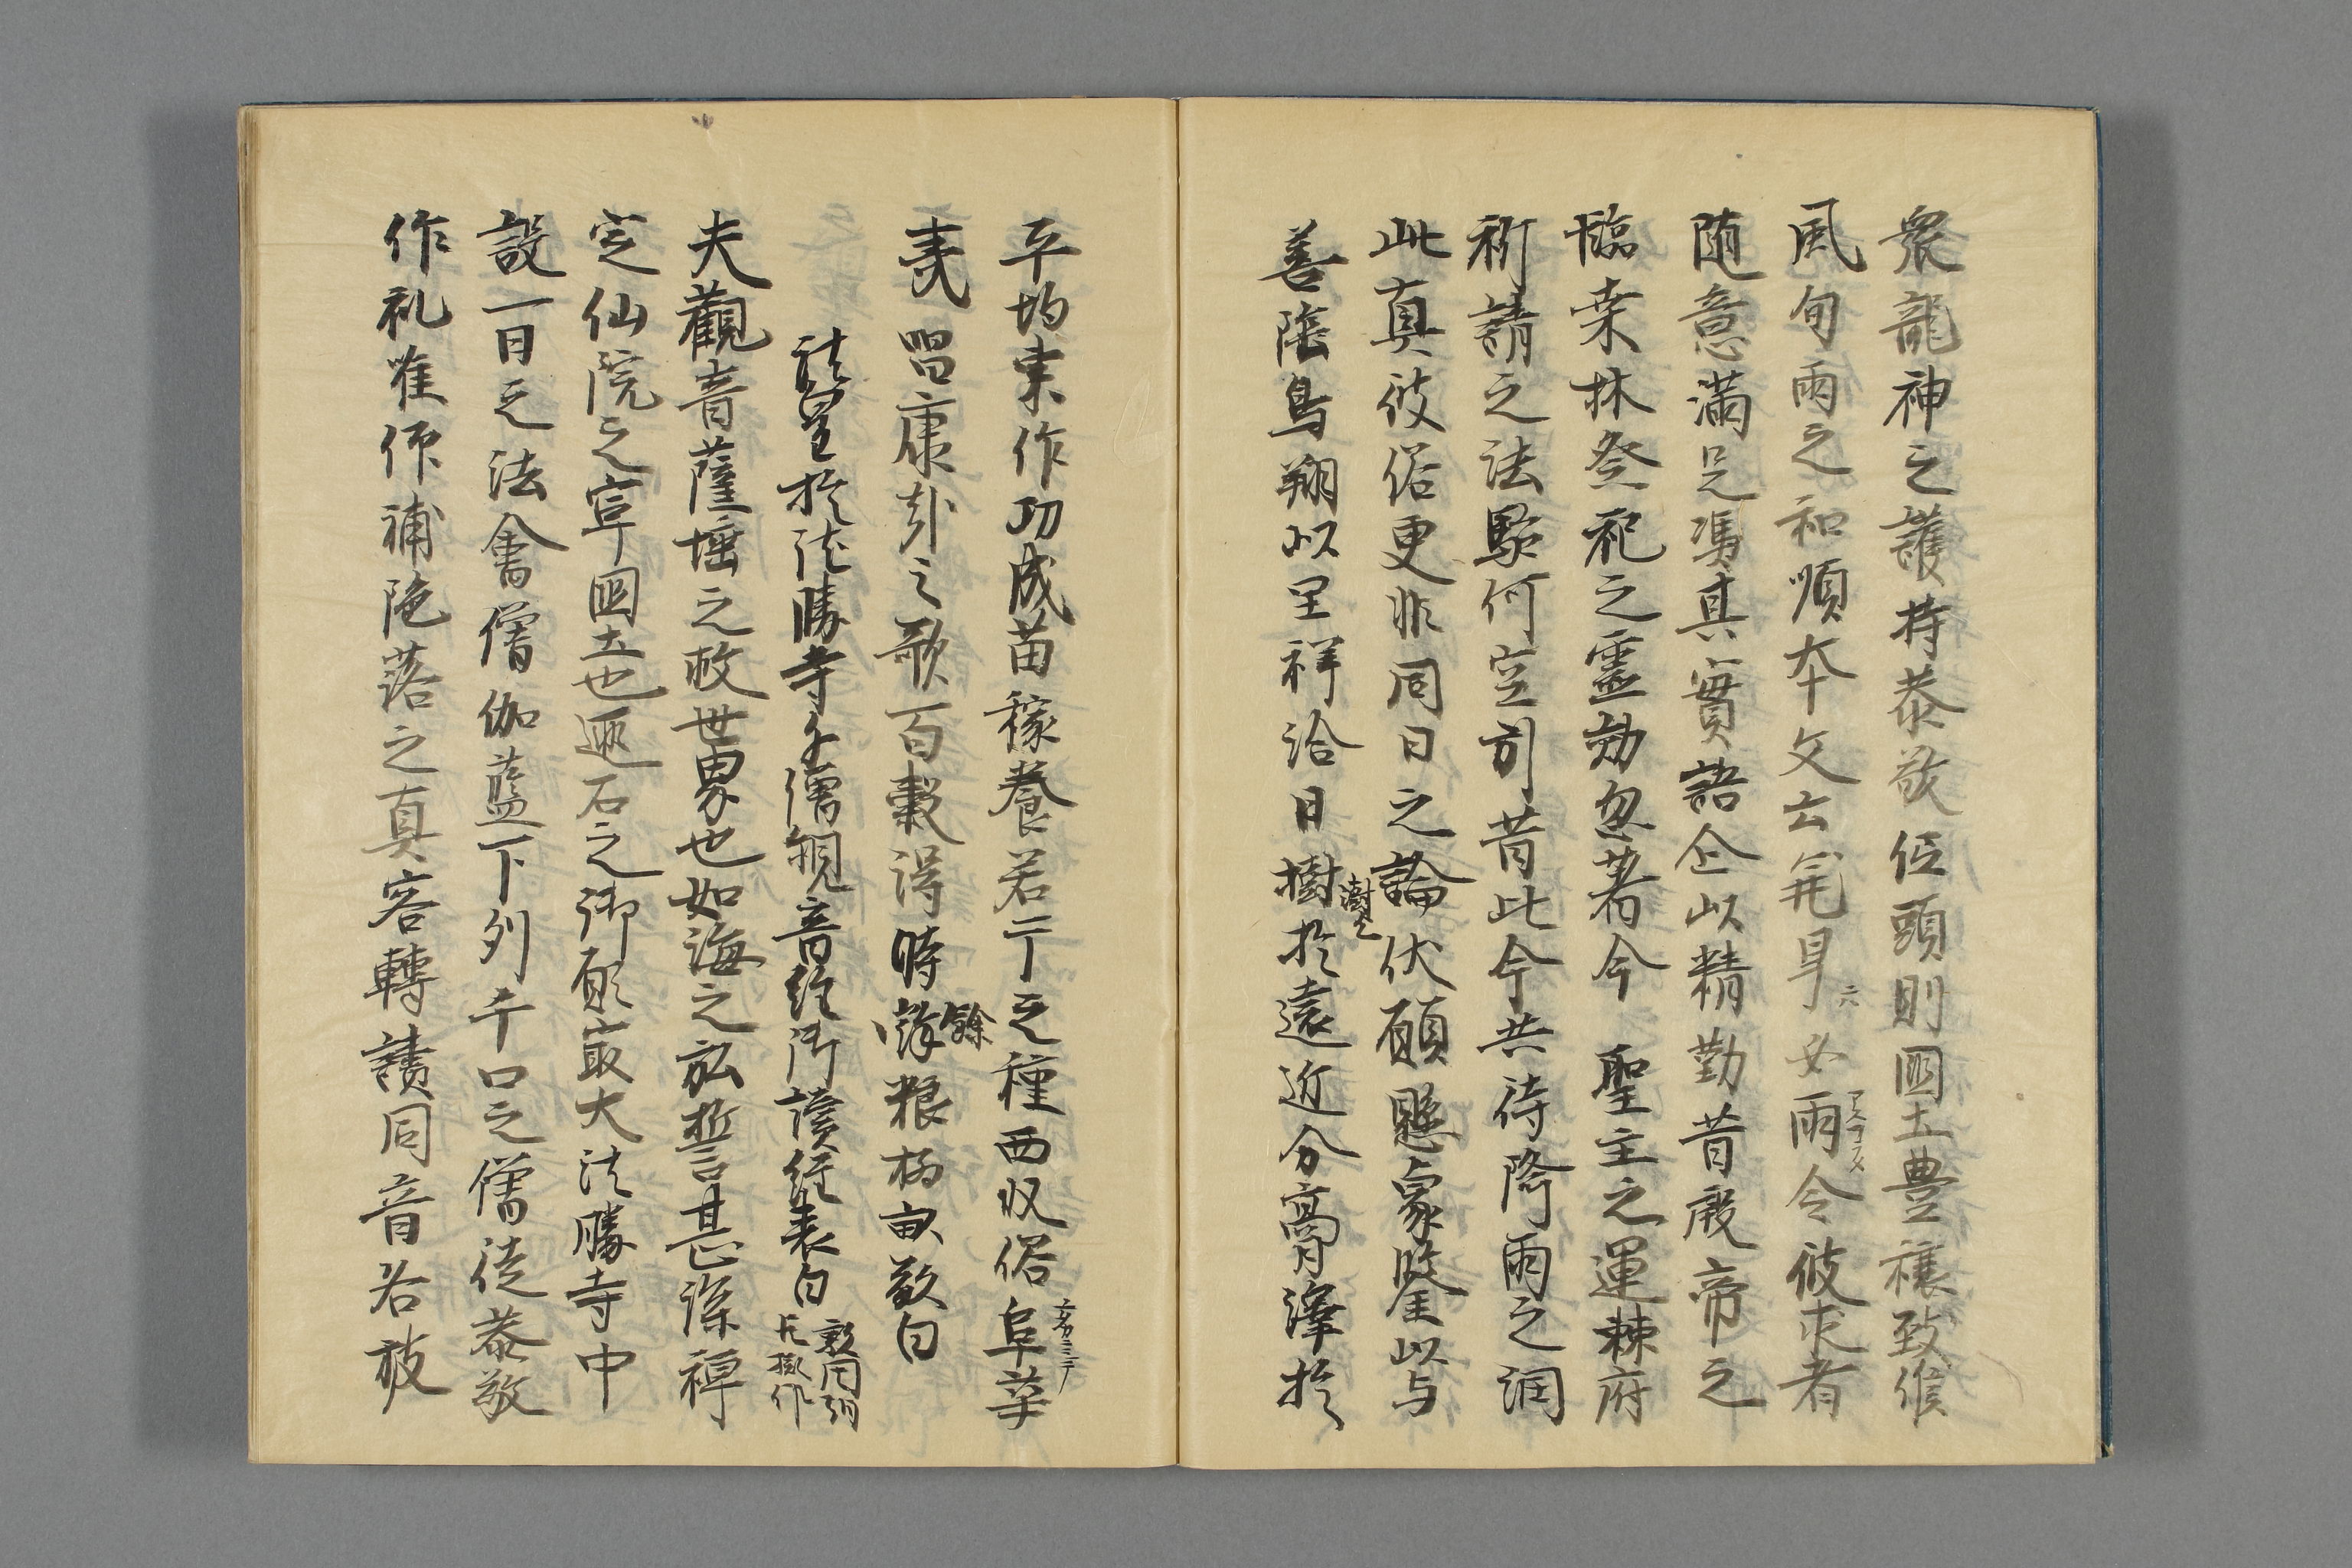 衆龍神之護持恭敬低頭則国土豊穣致候
風旬雨之和順本文云旱女雨令彼求者
随意満足馮其實語企以精勤昔殷帝之
臨桒林祭祀之靈効忽著今聖主之運棘府
祈請之法驗何空別昔此今共待降雨之潤
此真彼俗更非同日之論伏願懸象鑒以与
善陰鳥翔以呈祥洽日樹於遠近分膏澤於
澍
平均東作功成苗稼養若干之種西収俗阜莘
夷唱康哉之歌百穀得時粮栖畝敬白
餘
法皇於法勝寺千僧観音経御讀経表白
夫觀音薩埵之救世界也如海之弘誓甚深裨
定仙院之宰国土也逦石之御願最大法勝寺中
設一日之法會僧伽藍下列千口之僧徒恭敬
作礼唯係補陁落之真容轉讀同音若披